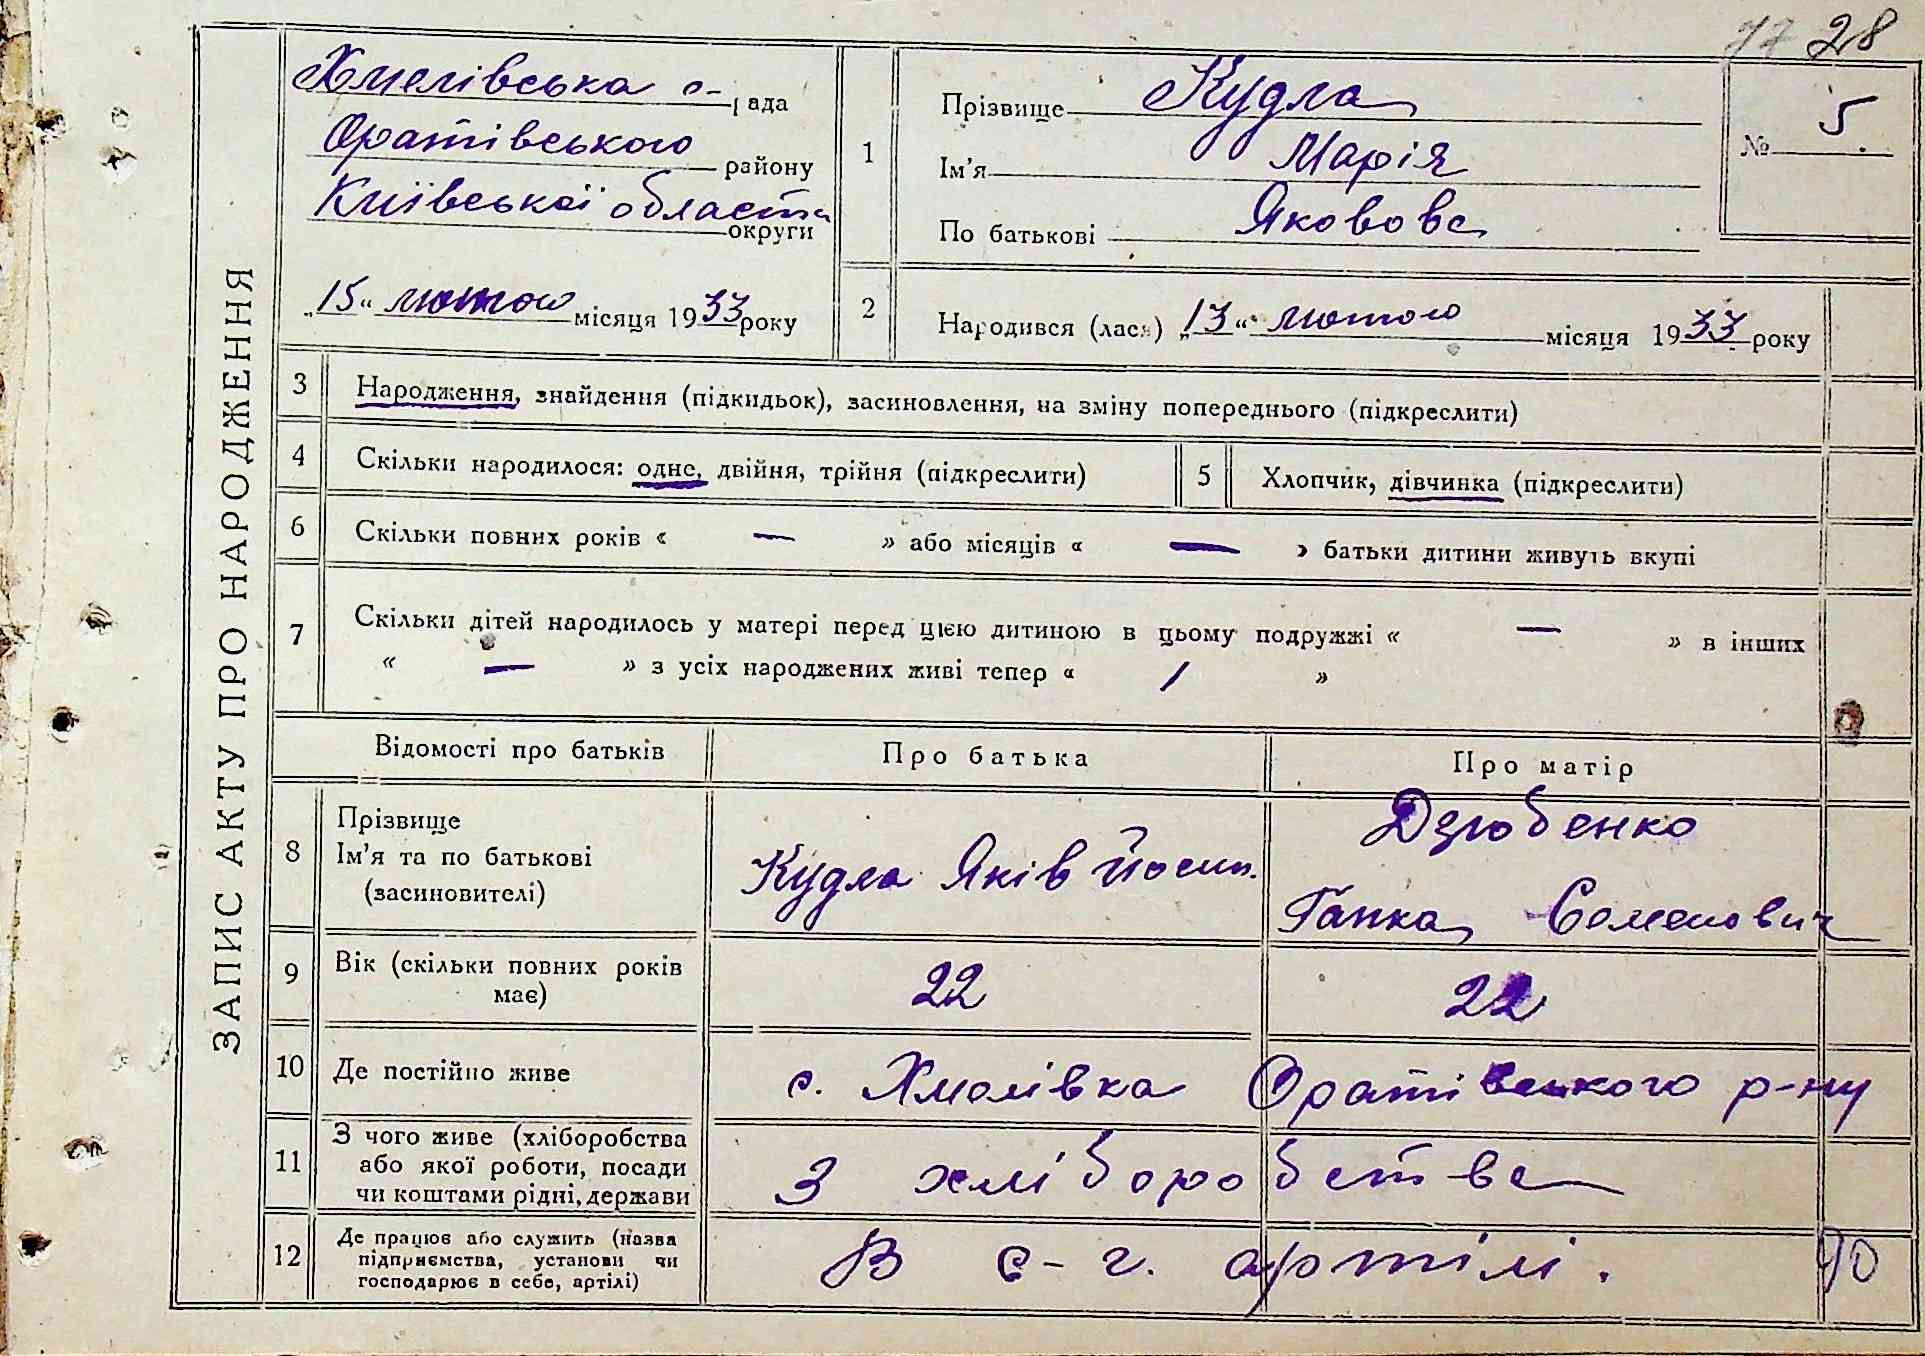 77 28
ЗАПИС АКТУ ПРО НАРОДЖЕННЯ
Хмелівська с-рада
Оратівського району
Київської области округи
„15“ лютого місяця 1933 року
1
Прізвище Кудла
Ім'я Марія
По батькові Яковова
№ 5
2
Народився (лася) „13“ лютого місяця 1933 року
3 Народження, знайдення (підкидьок), засиновлення, на зміну попереднього (підкреслити)
4 Скільки народилося: одне, двійня, трійня (підкреслити)
5 Хлопчик, дівчинка (підкреслити)
6 Скільки повних років « — » або місяців « — » батьки дитини живуть вкупі
7 Скільки дітей народилось у матері перед цією дитиною в цьому подружжі « — » в інших
« — » з усіх народжених живі тепер « 1 »
Відомості про батьків Про батька Про матір
8 Прізвище
Ім'я та по батькові
(засиновителі)
Кудла Яків Йосип.
Дзюбенко
Гапка Семенович
9 Вік (скільки повних років
має)
22 22
10 Де постійно живе с. Хмелівка Оратівського р-ну
11 З чого живе (хліборобства
або якої роботи, посади
чи коштами рідні, держави
З хліборобства
12 Де працює або служить (назва
підприємства, установи чи
господарює в себе, артілі)
В с-г. артілі.